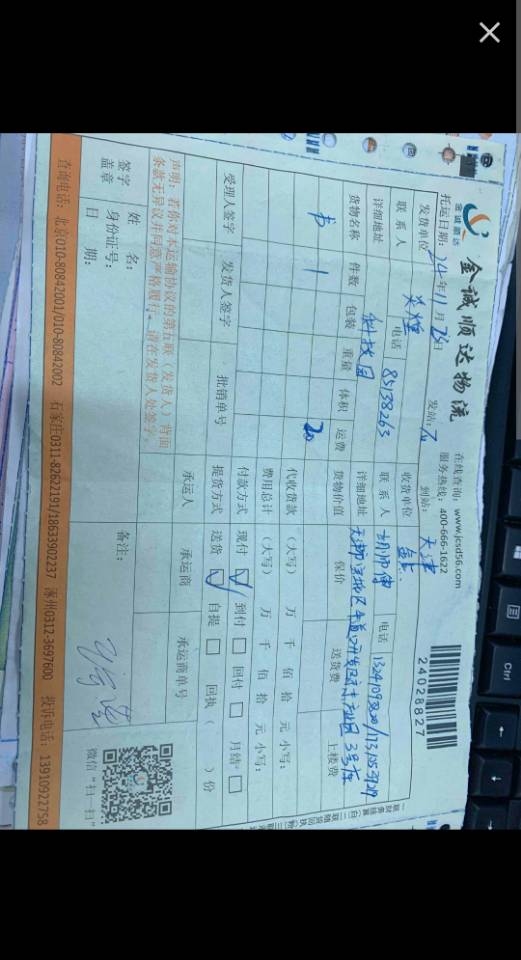 金诚顺达
金诚顺达物流
在线查询：www.jcsd56.com
服务热线：400-666-1622
24028827
托运日期：24年11月23日
发站：石
到站：天津
发货单位
收货单位
联系人
电话 85138263
联系人
电话
详细地址 科技园
详细地址
货物名称 件数 包装 重量 体积 运费 货物价值 保价 送货费 上楼费
书 1 20
代收货款 （大写） 万 千 佰 拾 元 小写：
费用总计 （大写） 万 千 佰 拾 元 小写：
付款方式 现付 ✓ 到付 □ 回付 □ 月结 □
受理人签字 发货人签字 批销单号 提货方式 送货 ✓ 自提 □ 回执（ ）份
承运人 承运商 承运商单号
声明：若你对本运输协议的第五联（发货人）背面
条款无异议并同意严格履行，请在发货人处签字。
签字
盖章
姓 名：
身份证号：
日 期：
备注：
微信“扫一扫”
查询电话：北京010-80842001/010-80842002 石家庄0311-82622191/18633902237 涿州0312-3697600 投诉电话：13910922758
Ctrl